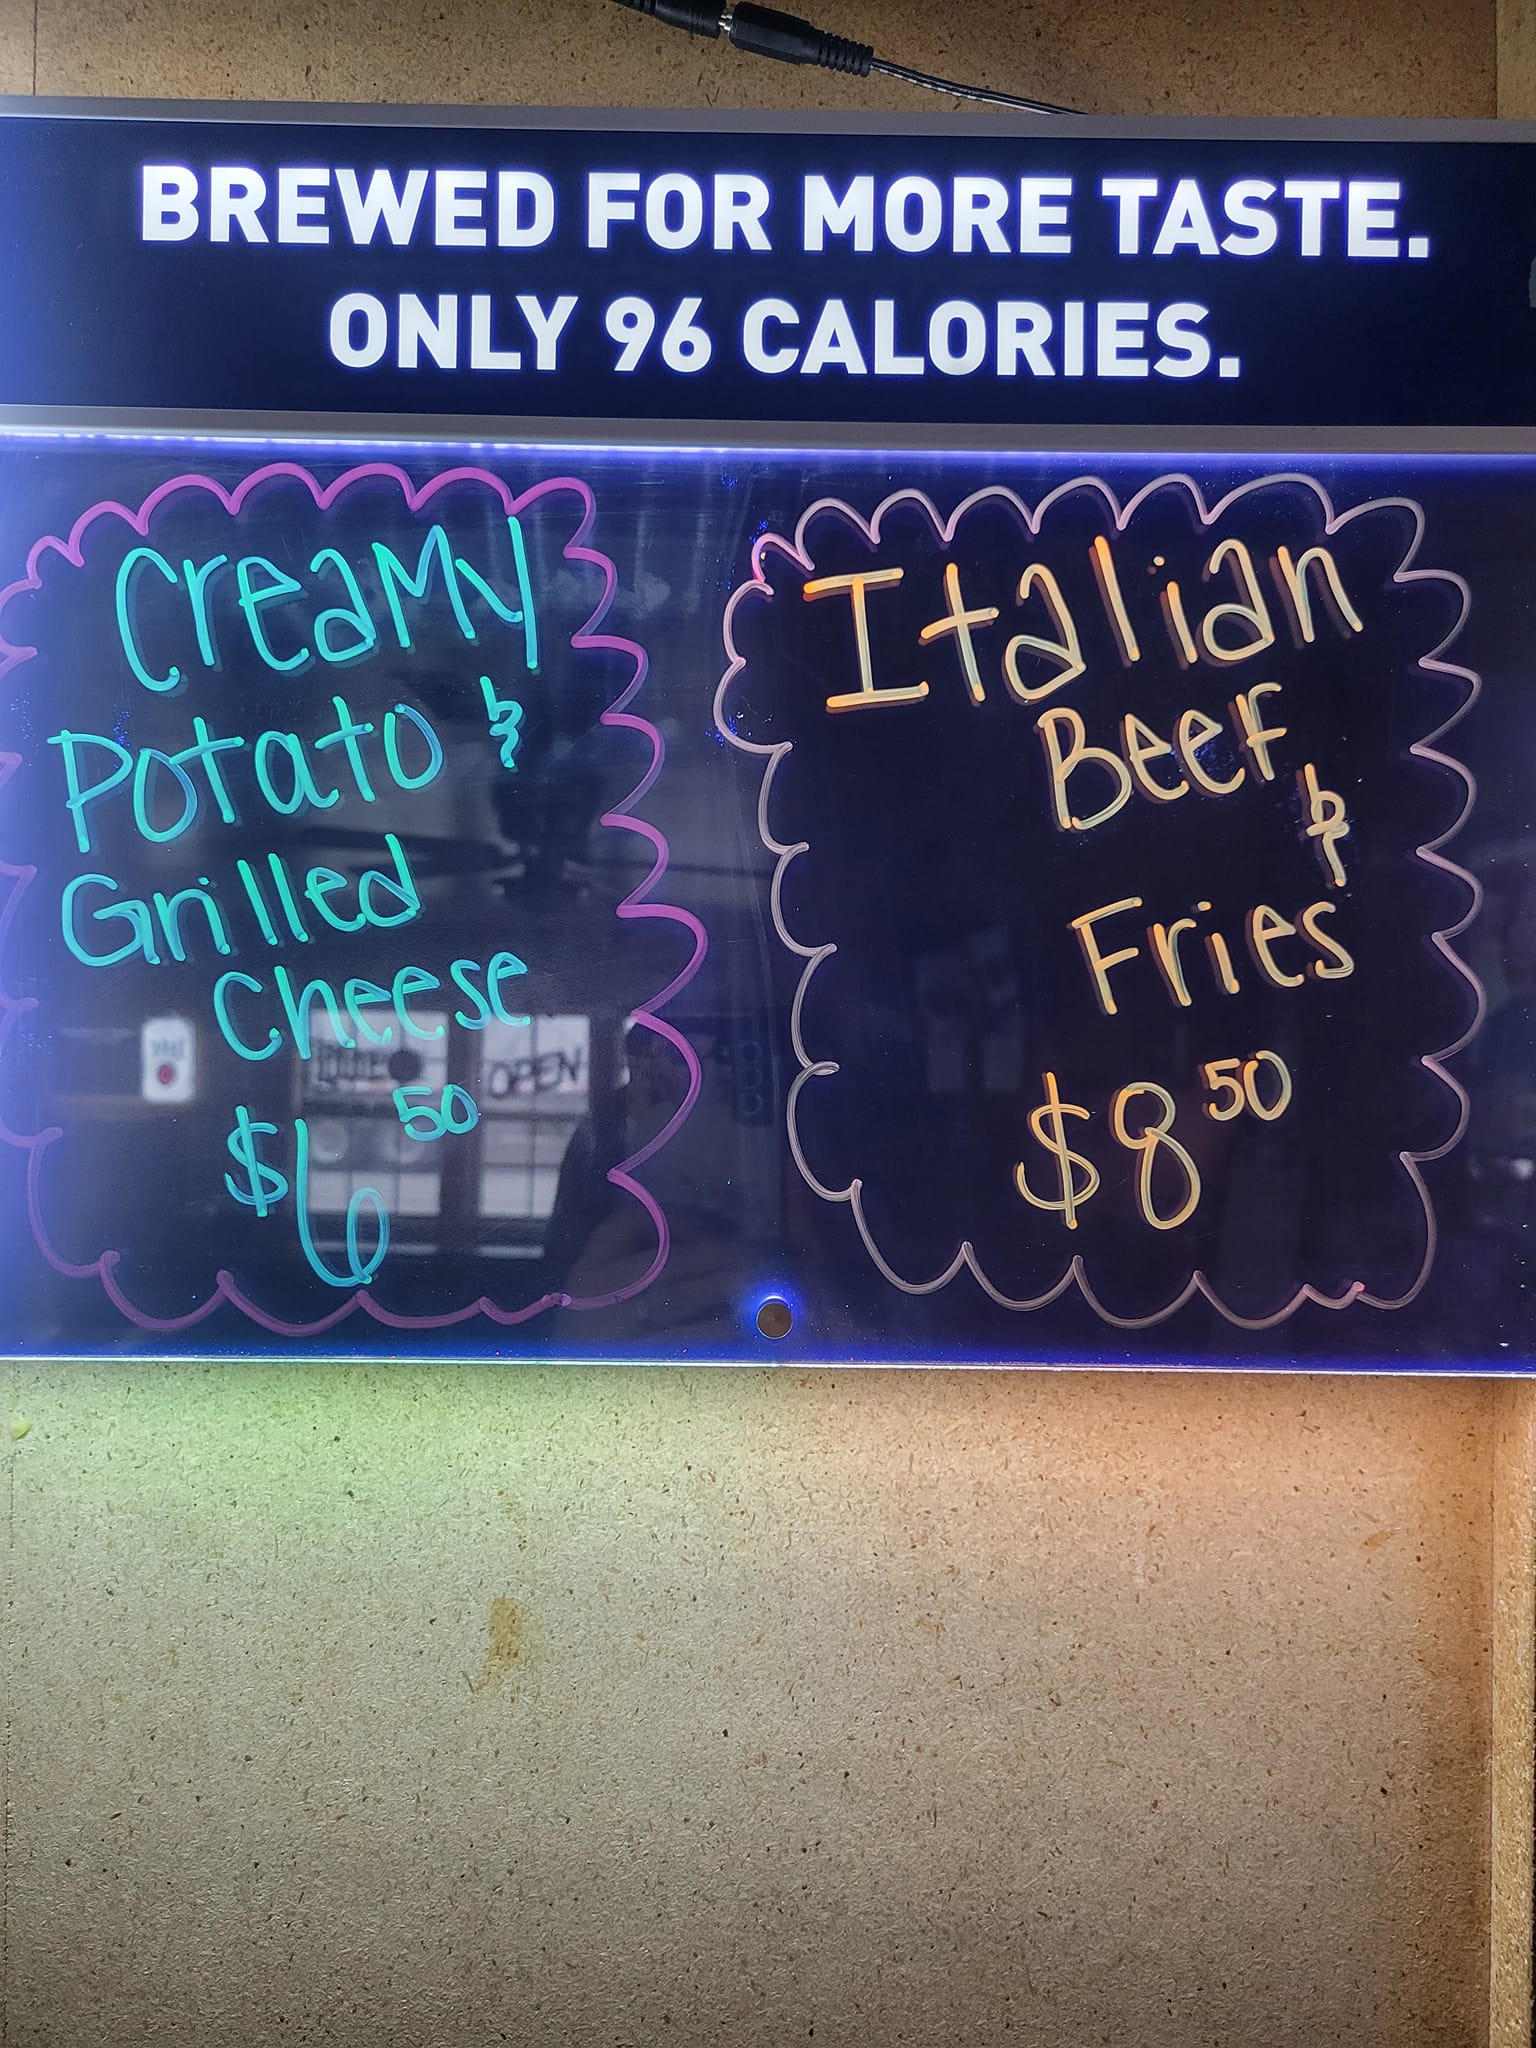 BREWED FOR MORE TASTE.
ONLY 96 CALORIES.
Creamy
Potato &
Grilled
Cheese
$6 50
Italian
Beef
&
Fries
$8 50
OPEN